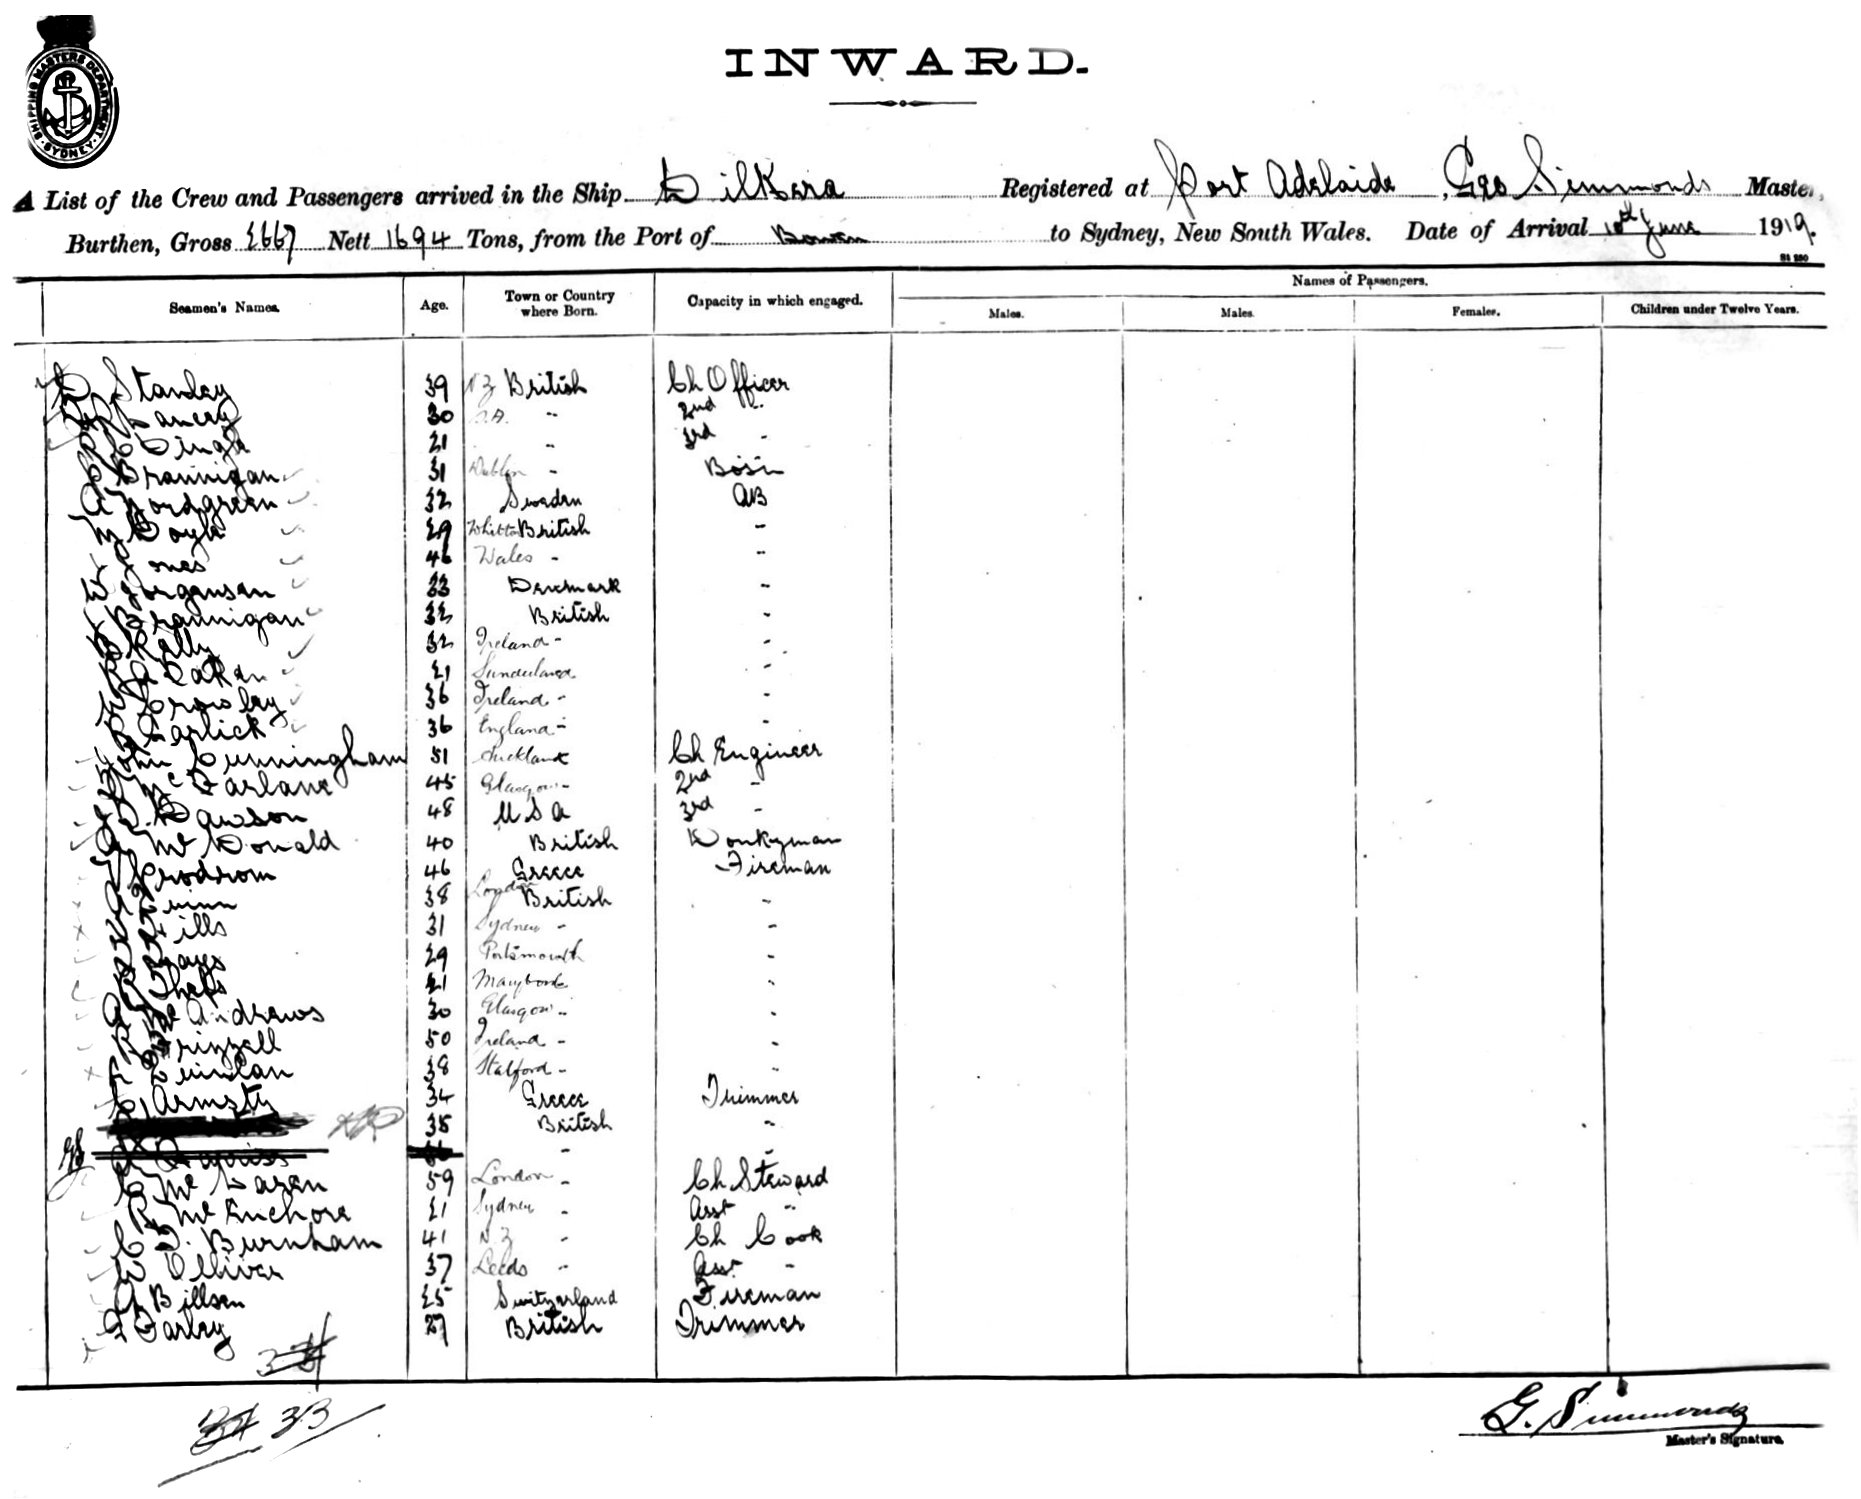 SHIPPING MASTERS DEPARTMENT SYDNEY
INWARD.
A List of the Crew and Passengers arrived in the Ship Dilkera Registered at Port Adelaide, Geo Simmonds Master,
Burthen, Gross 2667 Nett 1694 Tons, from the Port of Bowen to Sydney, New South Wales. Date of Arrival 10th June 1919.
Names of Passengers.
Seamen's Names. Age. Town or Country where Born. Capacity in which engaged. Males. Males. Females. Children under Twelve Years.
D Stanley 39 NZ British Ch Officer
30 " 2nd "
Dingle 21 " 3rd "
Brannigan 31 Dublin " Bosn
A Nordgreen 32 Sweden AB
Doyle 29 British "
Jones 46 Wales " "
W Jorgansen 33 Denmark "
Brannigan 32 British "
Kelly 32 Ireland " "
Baker 21 Sunderland "
Crowley 36 Ireland " "
Garlick 36 England " "
John Cunningham 51 Auckland Ch Engineer
McFarlane 45 Glasgow " 2nd "
Dawson 48 U S A 3rd "
A McDonald 40 British Donkyman
Prodrom 46 Greece Fireman
Quinn 38 London British "
31 Sydney " "
29 Portsmouth "
21 "
A McAndrews 30 Glasgow " "
Frizzell 50 Ireland " "
Quinlan 38 " "
C Armsty 34 Greece Trimmer
35 British "
" "
C McLaren 59 London " Ch Steward
R McEnchore 21 Sydney " Asst "
C F. Burnham 41 N.Z " Ch Cook
W Olliver 37 Leeds " Asst "
A Billsen 25 Switzerland Fireman
G Farley 27 British Trimmer
34
34 33
G. Simmonds
Master's Signature.